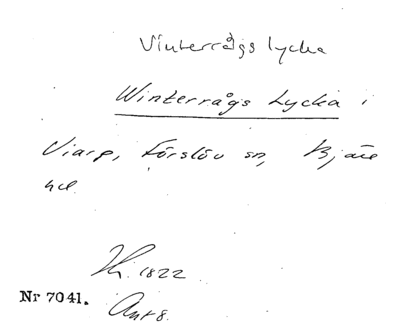 Vinterrågs lycka
Winterrågs Lycka i
Viarp, Förslöv sn, Bjäre
hd
Jh. 1822
Nr 7041.
Akt 8.